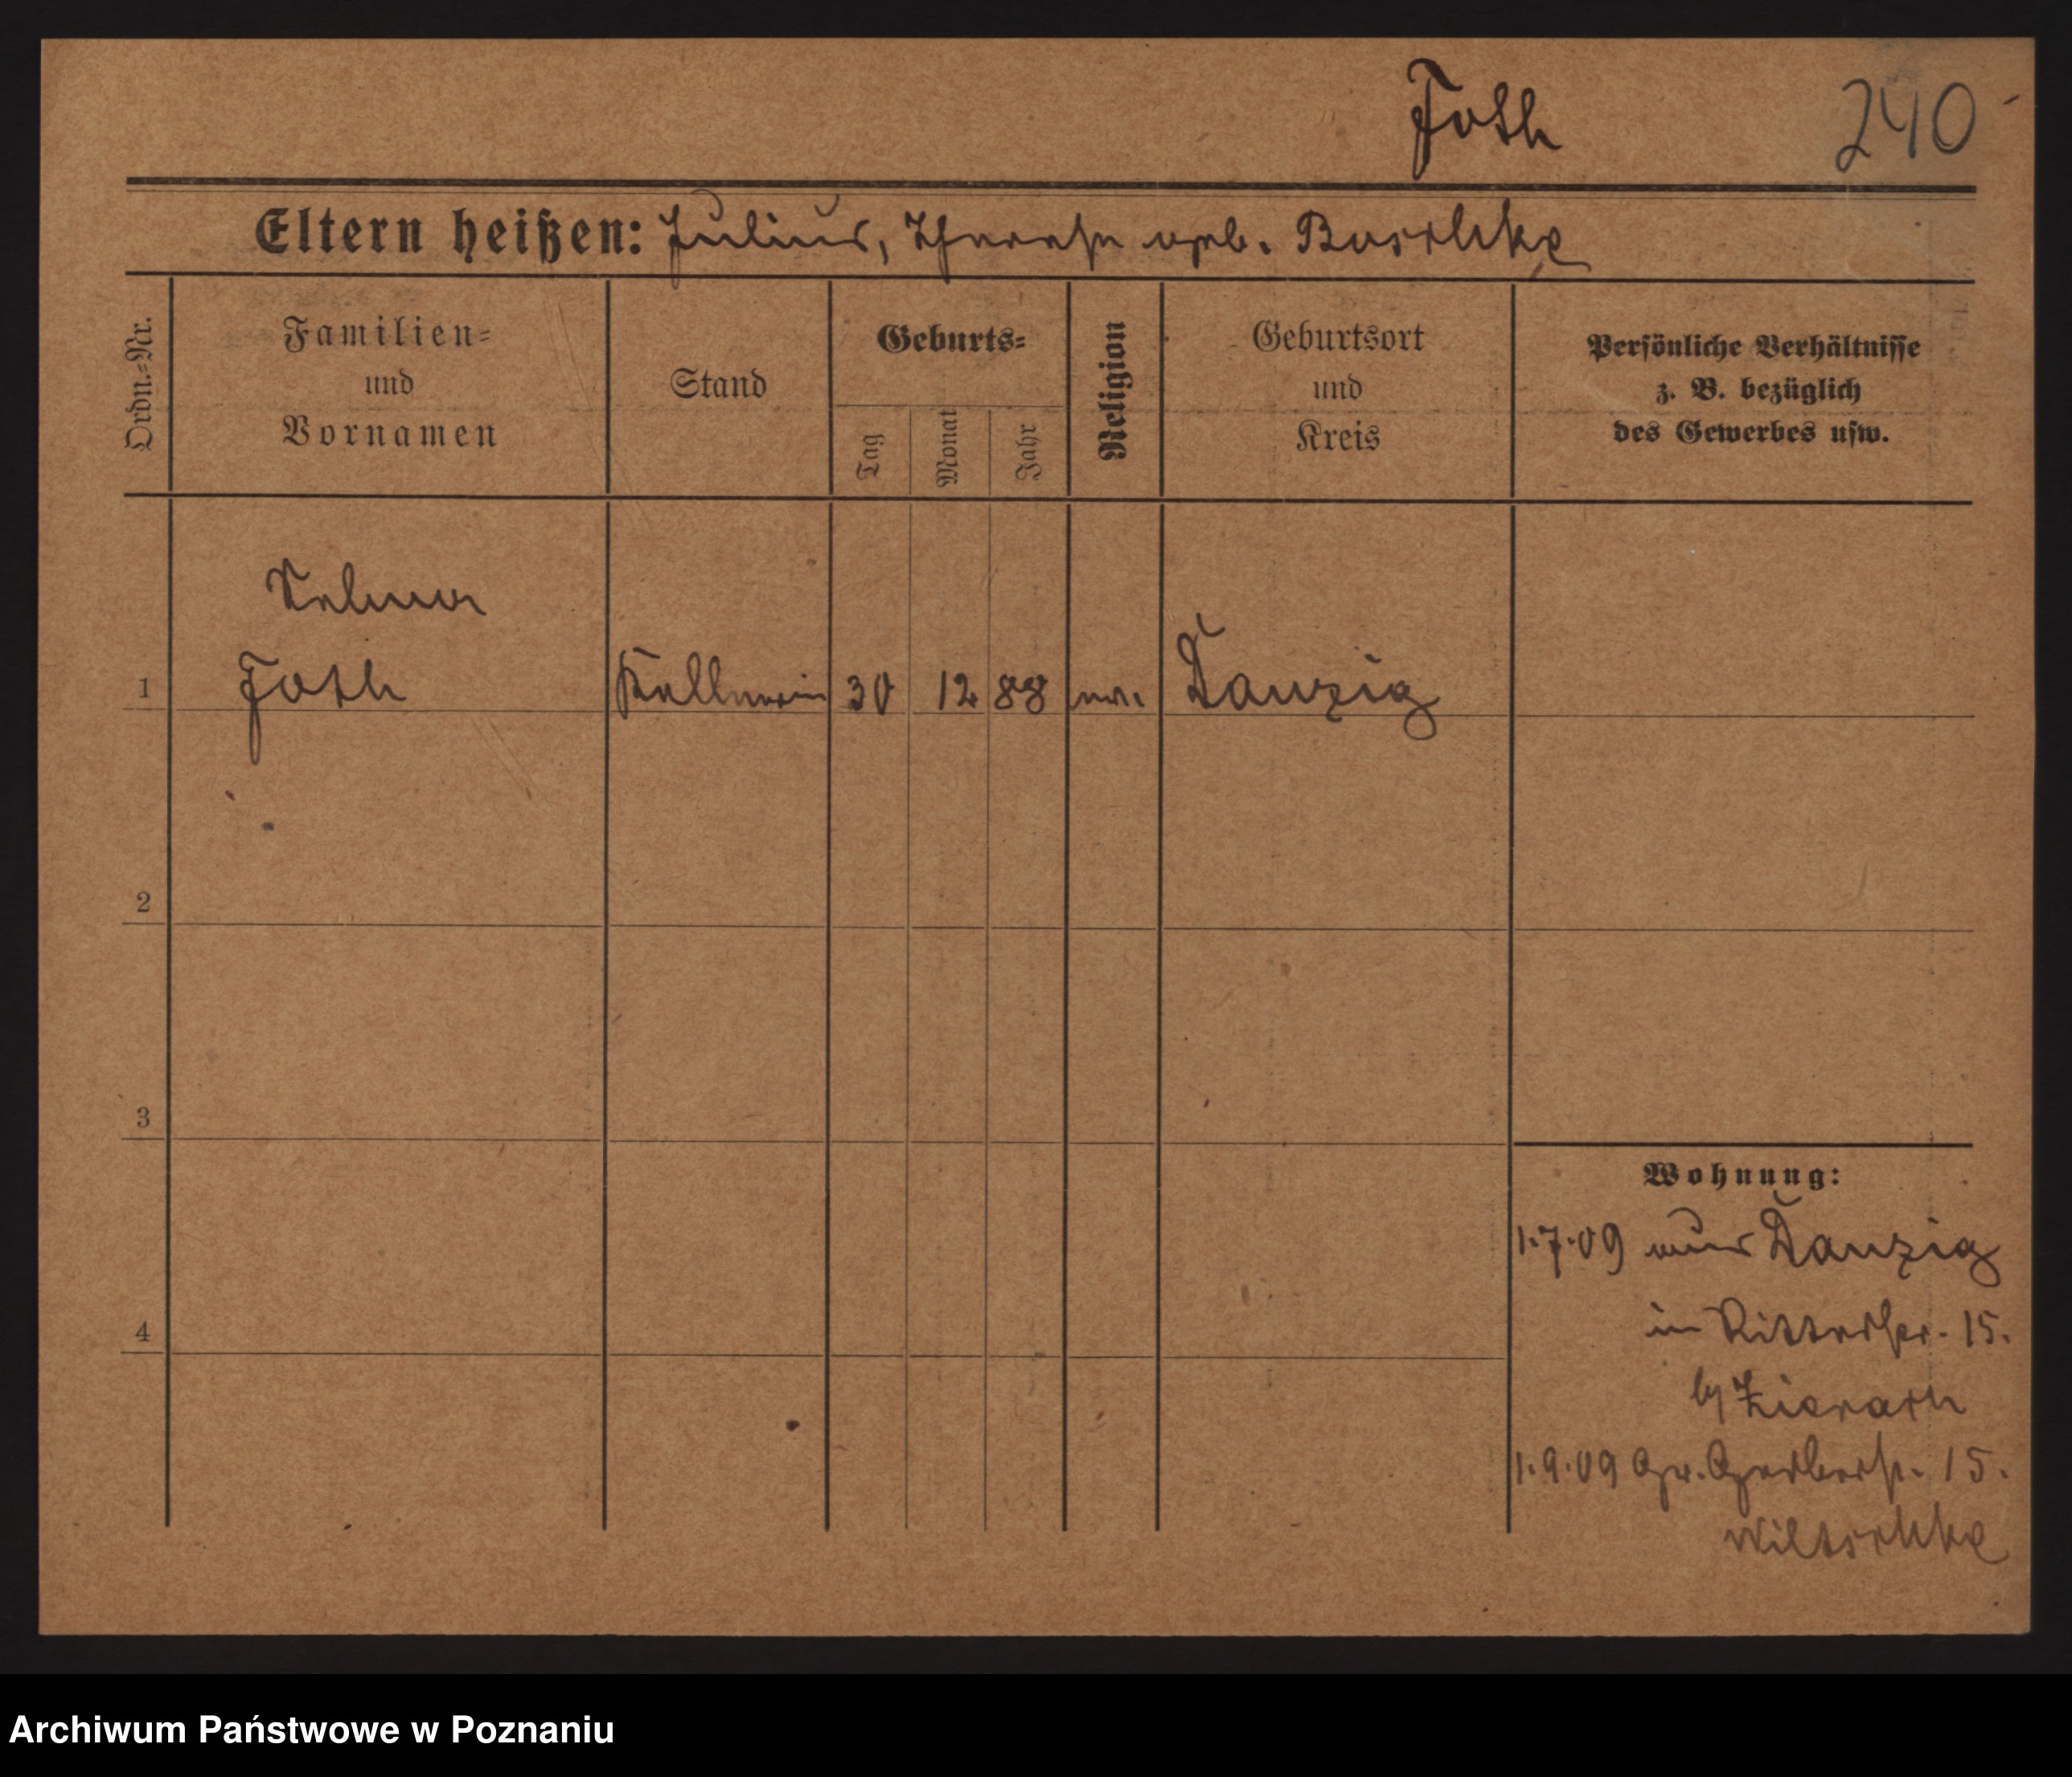 Foth 240
Eltern heißen: Julius, Therese geb. Boschke
Ordn.=Nr.
Familien=
und
Vornamen
Stand
Geburts=
Tag
Monat
Jahr
Religion
Geburtsort
und
Kreis
Persönliche Verhältnisse
z. B. bezüglich
des Gewerbes usw.
Selma
1 Foth Kellnerin 30 12 88 ev. Danzig
2
3
4
Wohnung:
1.7.09 aus Danzig
in Ritterstr. 15.
b/ Zierath
1.9.09 Gr. Gerberstr. 15.
Wiltschke
Archiwum Państwowe w Poznaniu